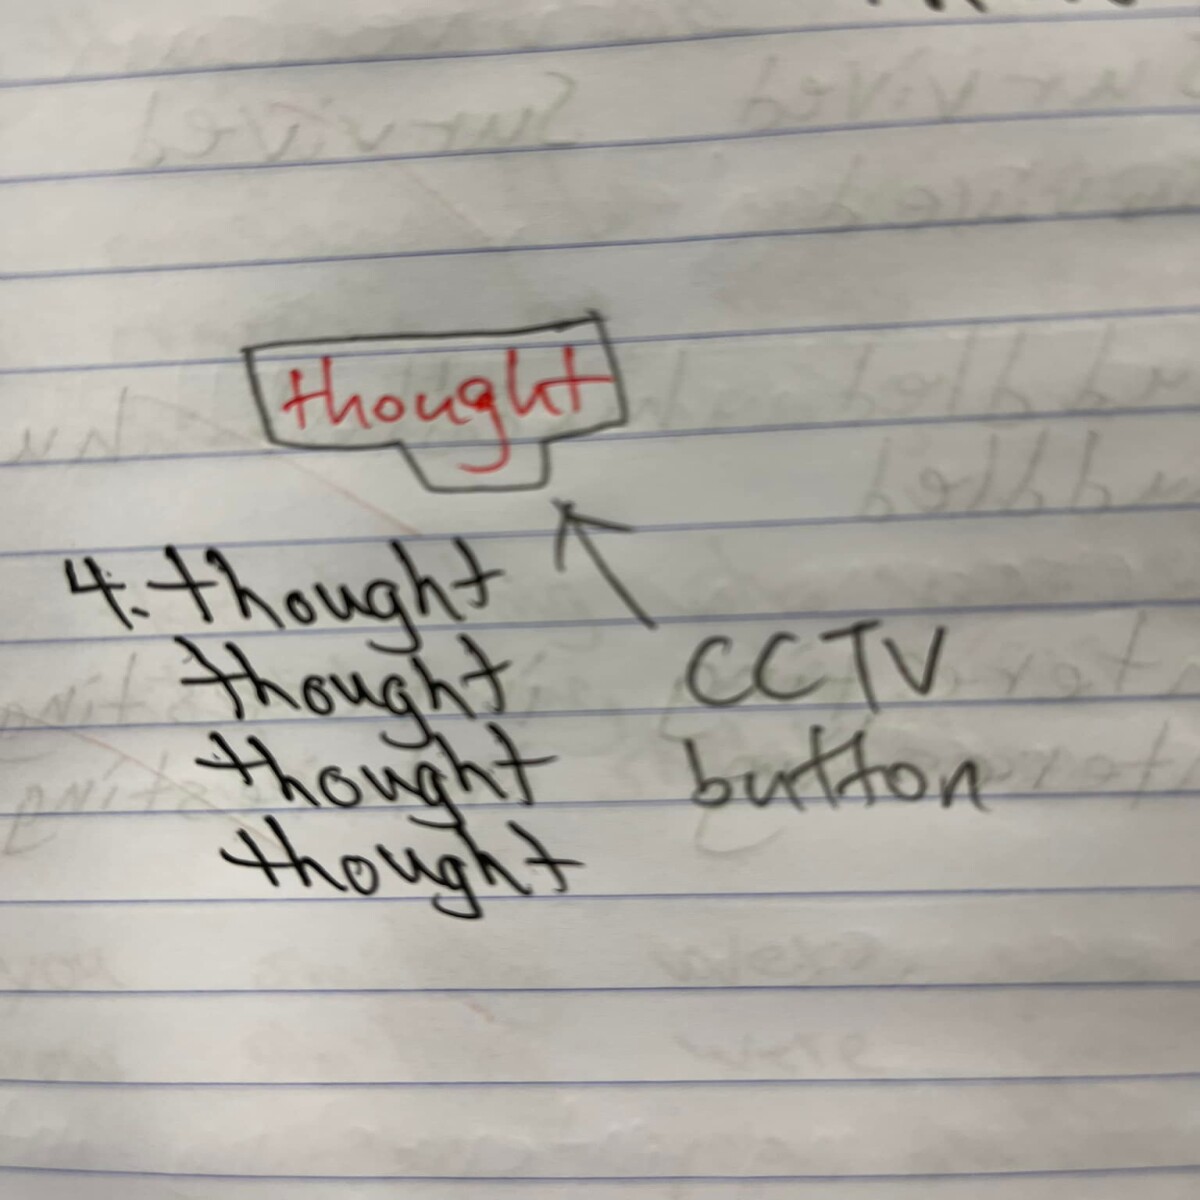 thought
4. thought
thought
thought
thought
CCTV
button